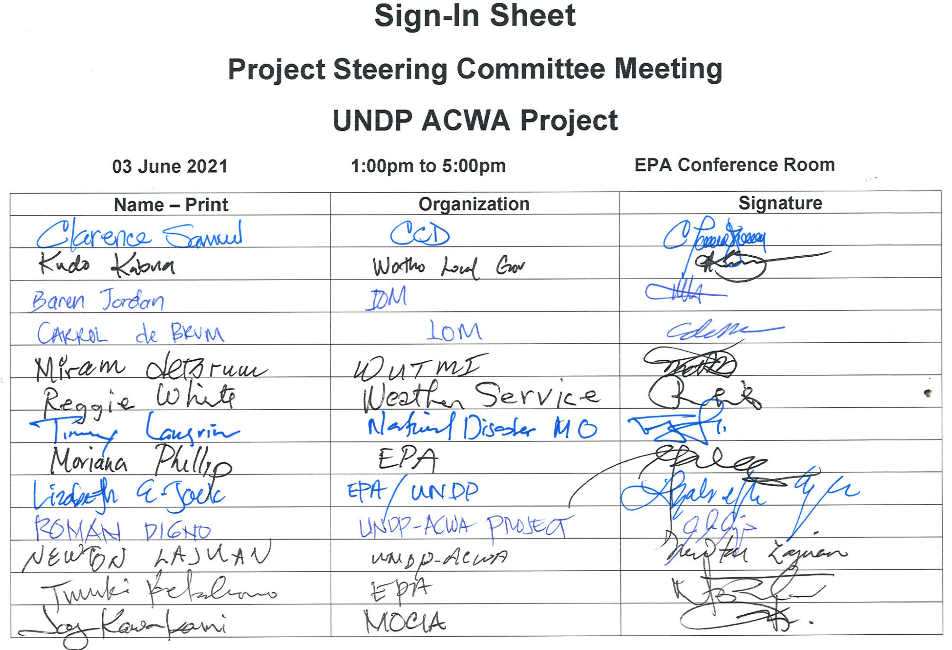 Sign-In Sheet
Project Steering Committee Meeting
UNDP ACWA Project
03 June 2021 1:00pm to 5:00pm EPA Conference Room
Name – Print Organization Signature
Clarence Samuel CCD
Kudo Kabua Wotho Local Gov
Baren Jordan IOM
CARROL de BRUM IOM
Miram deBrum WUTMI
Reggie White Weather Service
Timmy Langrin National Disaster MO
Moriana Phillip EPA
EPA/UNDP
ROMAN DIGNO UNDP-ACWA PROJECT
NEWTON LAJUAN UNDP-ACWA Newton Lajuan
EPA
Jay Kawakami MOCIA